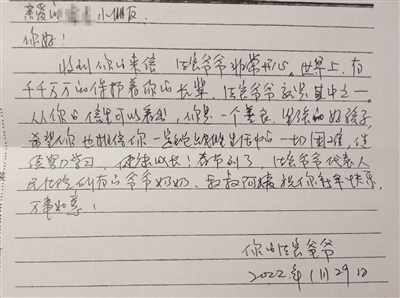 亲爱的 小朋友
你好！
收到你的来信 法官爷爷非常开心。世界上，有
千千万万的保护着你的长辈，法官爷爷就是其中之一。
从你的信里可以看到，你是一个善良、坚强的好孩子，
希望你也相信你一定能克服生活中的一切困难，继
续努力学习，健康成长！春节到了，法官爷爷代表人
民法院所有的爷爷奶奶、叔叔阿姨祝你新年快乐，
万事如意！
你的法官爷爷
2022年1月29日